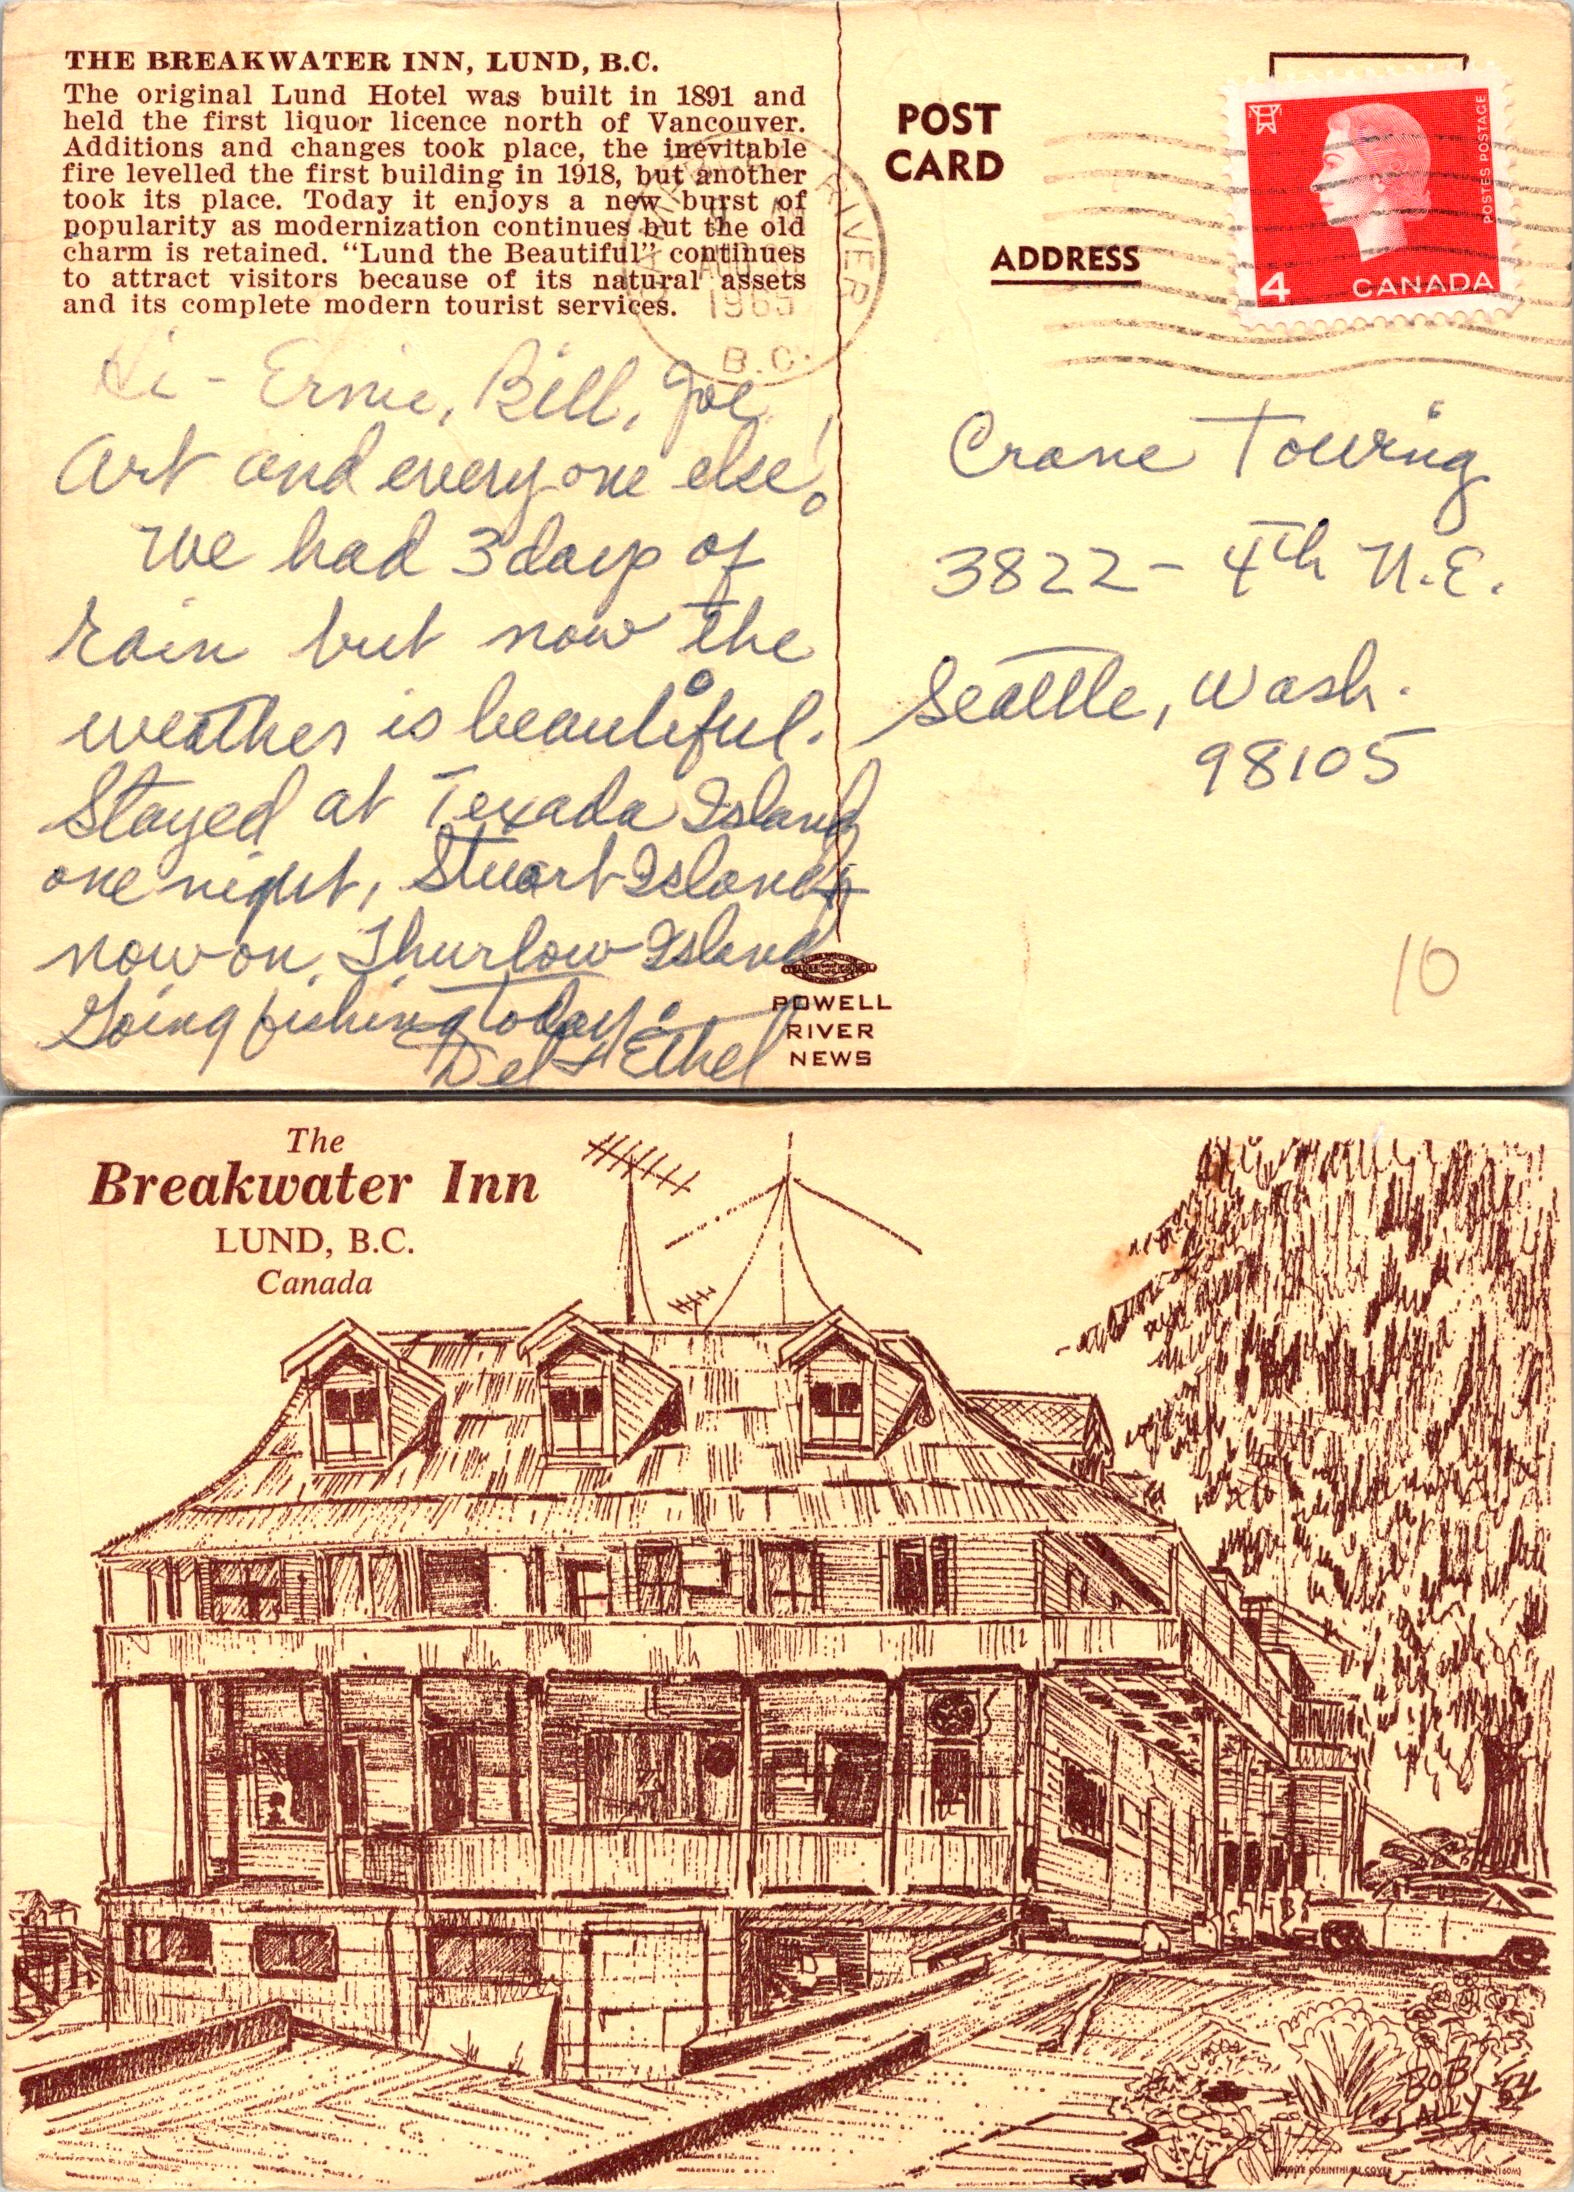 THE BREAKWATER INN, LUND, B.C.
The original Lund Hotel was built in 1891 and
held the first liquor licence north of Vancouver.
Additions and changes took place, the inevitable
fire levelled the first building in 1918, but another
took its place. Today it enjoys a new burst of
popularity as modernization continues but the old
charm is retained. "Lund the Beautiful" continues
to attract visitors because of its natural assets
and its complete modern tourist services.
Hi - Ernie, Bill, Joe,
Art and everyone else!
We had 3 days of
rain but now the
weather is beautiful.
Stayed at Texada Island
one night, Stuart Island &
now on Thurlow Island
Going fishing today.
Del & Ethel
RIVER
AUG
1965
B.C.
POST
CARD
ADDRESS
POSTES POSTAGE
4 CANADA
Crane Touring
3822 - 4th N.E.
Seattle, Wash.
98105
10
POWELL
RIVER
NEWS
The
Breakwater Inn
LUND, B.C.
Canada
BOB
LALLY
CORINTHIAN COVER